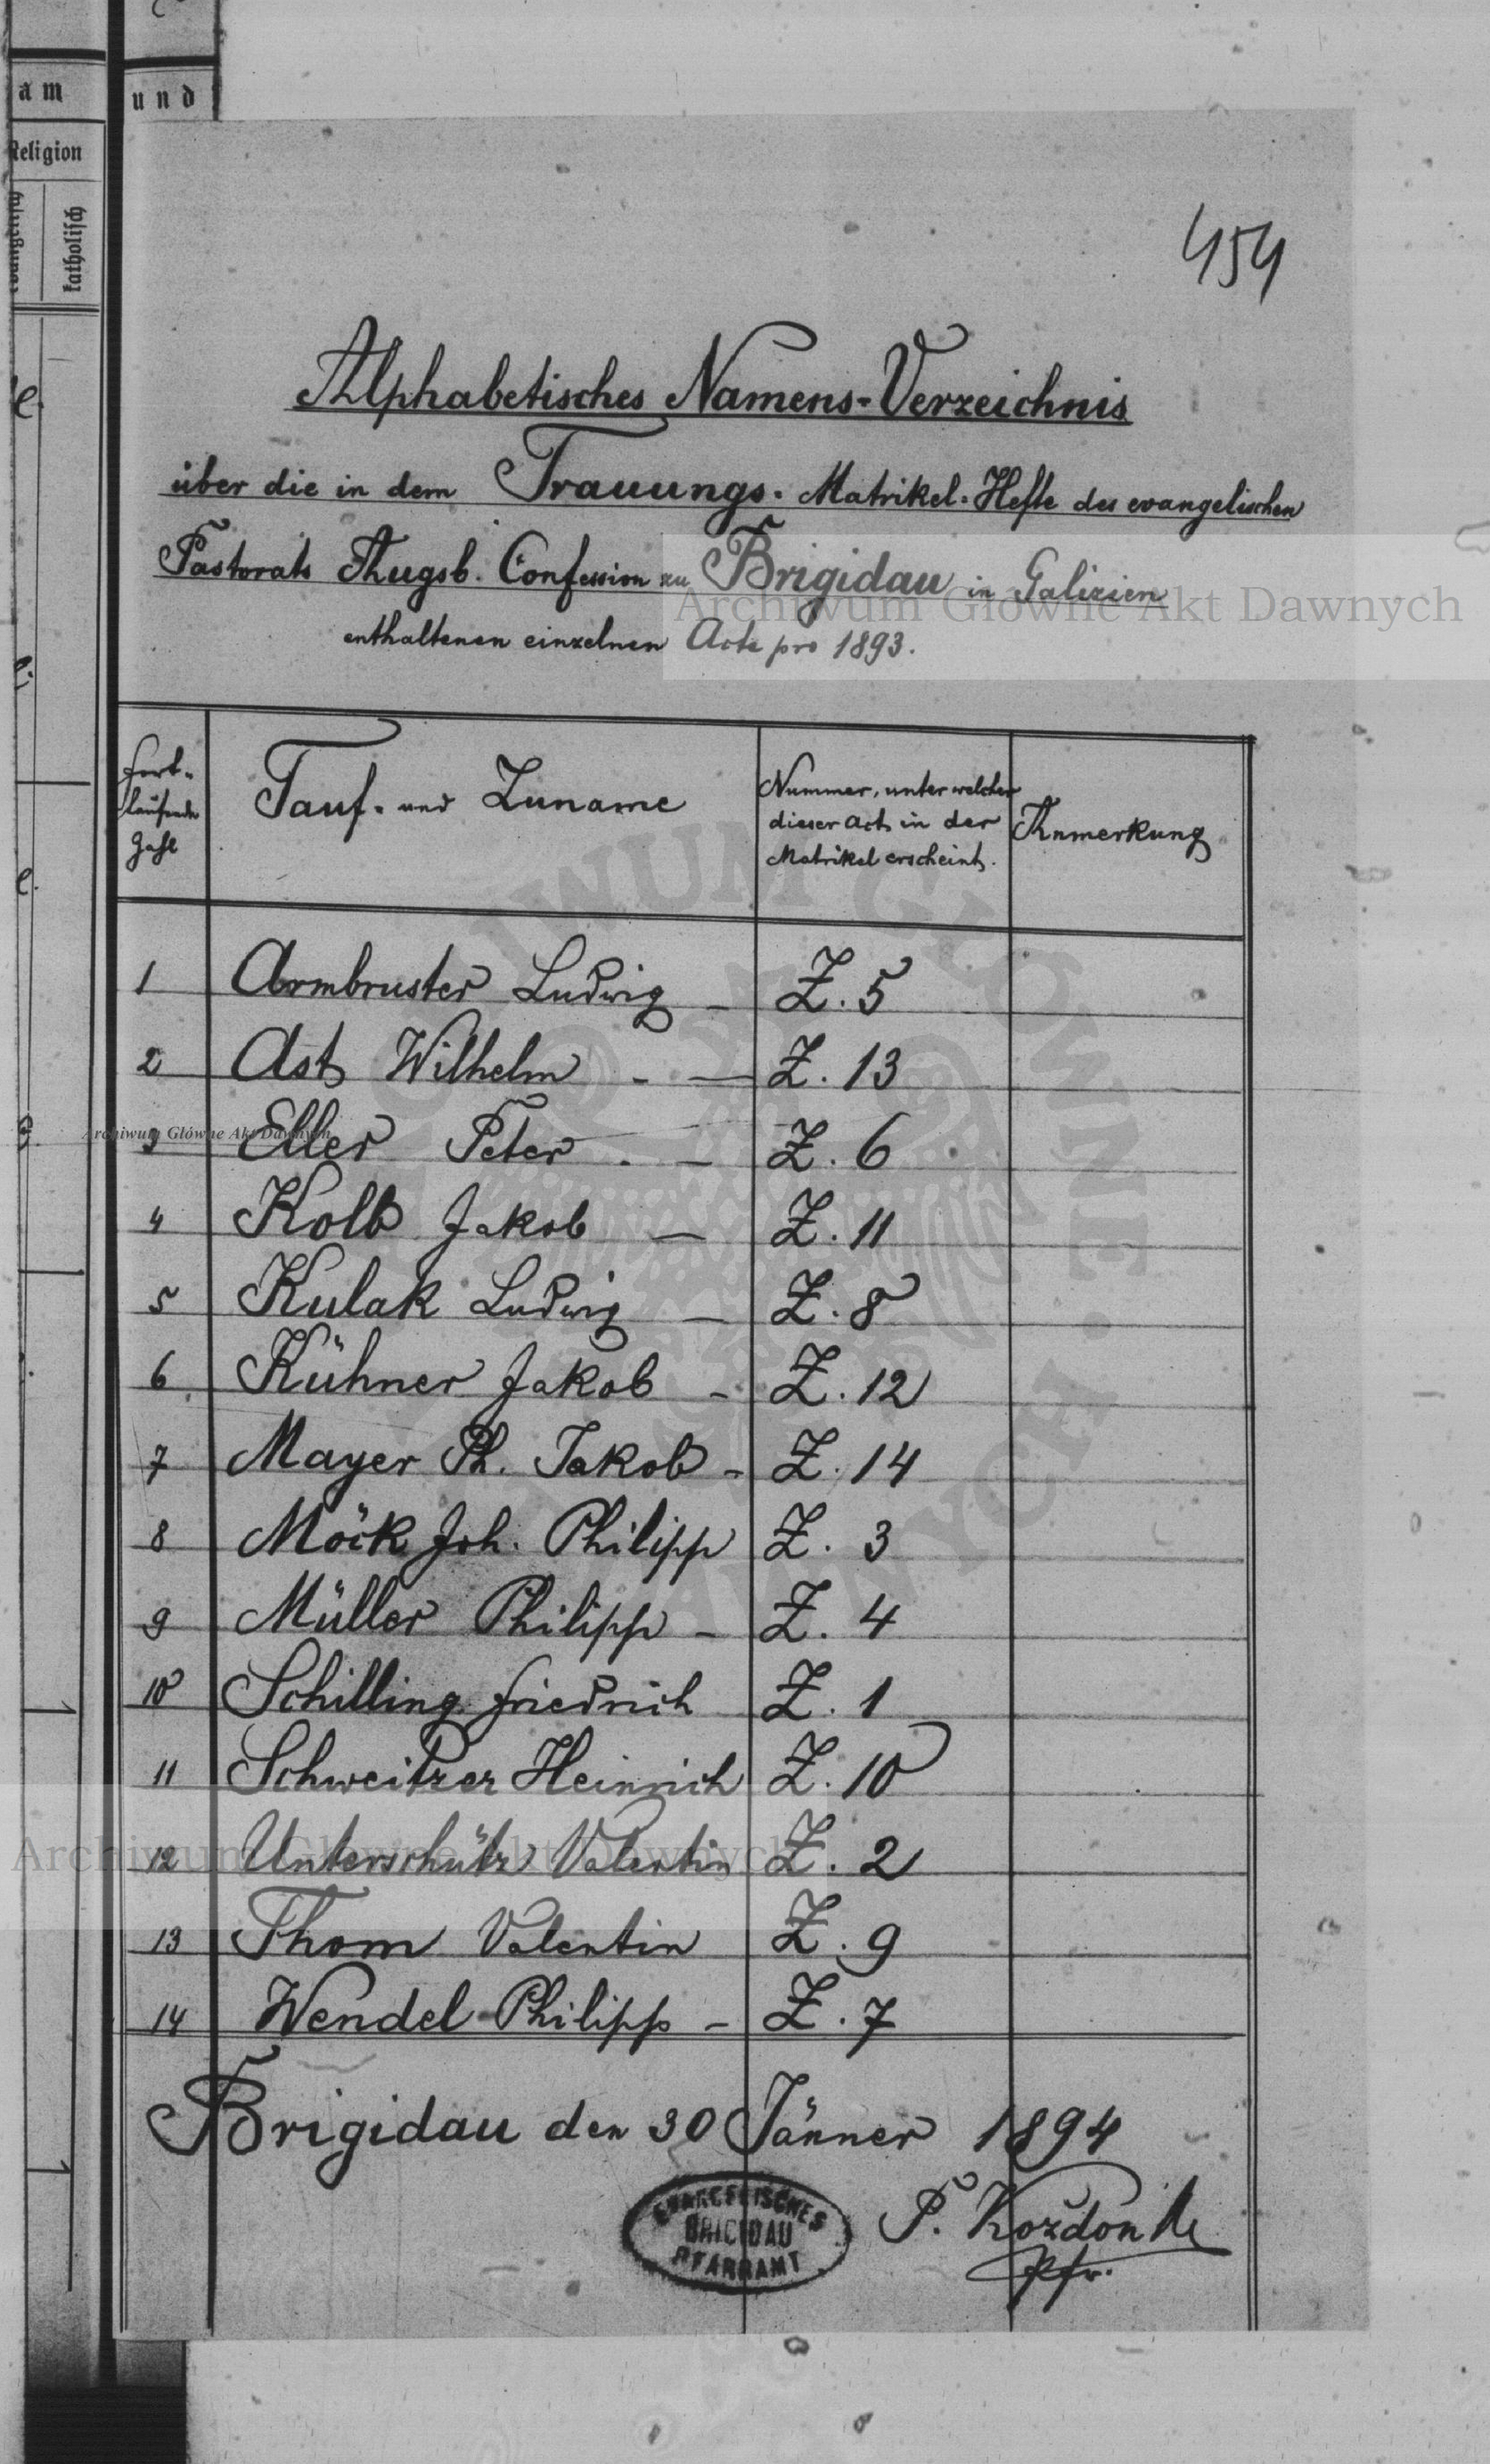 am
und
Religion
evangelisch
katholisch
454
Alphabetisches Namens-Verzeichnis
über die in dem Trauungs-Matrikel-Hefte des evangelischen
Pastorats Augsb. Confession zu Brigidau in Galizien
Archiwum Główne Akt Dawnych
enthaltenen einzelnen Acte pro 1893.
Fort-
laufende
Zahl
Tauf- und Zuname
Nummer, unter welcher
dieser Act in der
Matrikel erscheint.
Anmerkung
1 Armbruster Ludwig - Z. 5
2 Ast Wilhelm - - Z. 13
3 Eller Peter . - Z. 6
Archiwum Główne Akt Dawnych
4 Kolb Jakob - Z. 11
5 Kulak Ludwig - Z. 8
6 Kühner Jakob - Z. 12
7 Mayer Ph. Jakob - Z. 14
8 Möck Joh. Philipp Z. 3
9 Müller Philipp - Z. 4
10 Schilling Friedrich Z. 1
11 Schweitzer Heinrich Z. 10
12 Unterschütz Valentin Z. 2
Archiwum Główne Akt Dawnych
13 Thom Valentin Z. 9
14 Wendel Philipp - Z. 7
Brigidau den 30 Jänner 1894
EVANGELISCHES
BRIGIDAU
PFARRAMT
P. Koždoń
Pfr.